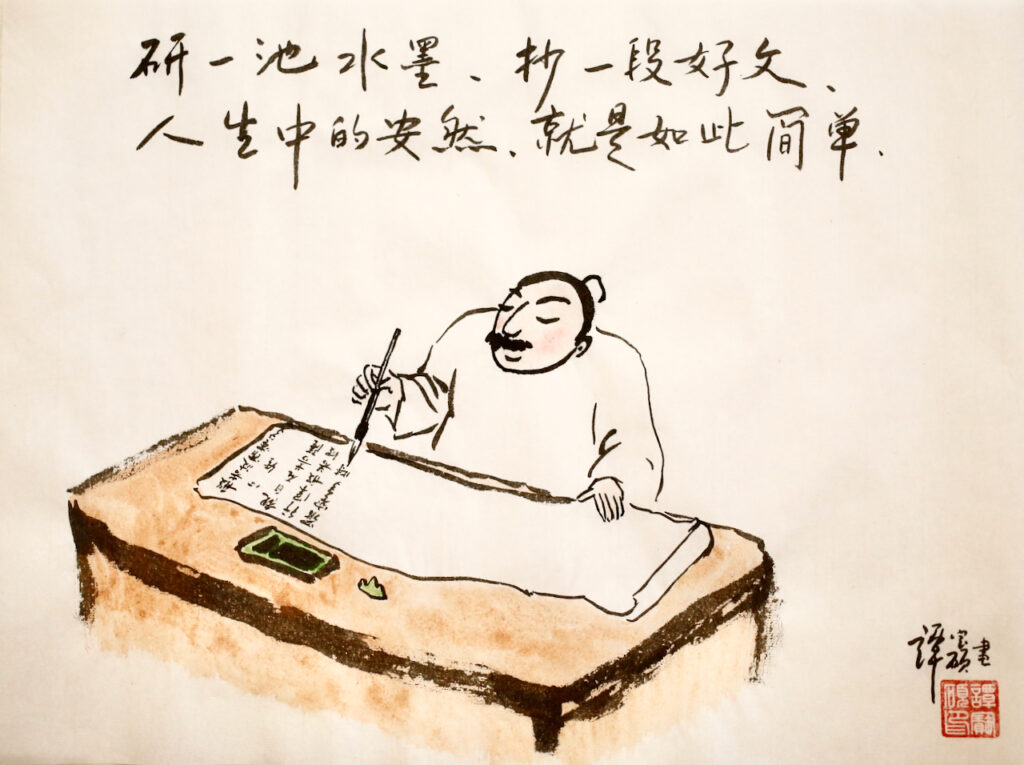 研一池水墨、抄一段好文、
人生中的安然、就是如此简单.
譚寶碩畫
譚寶碩印